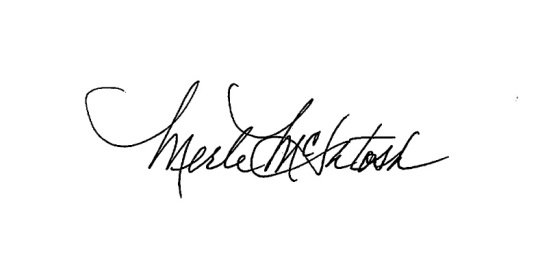 Merle McIntosh